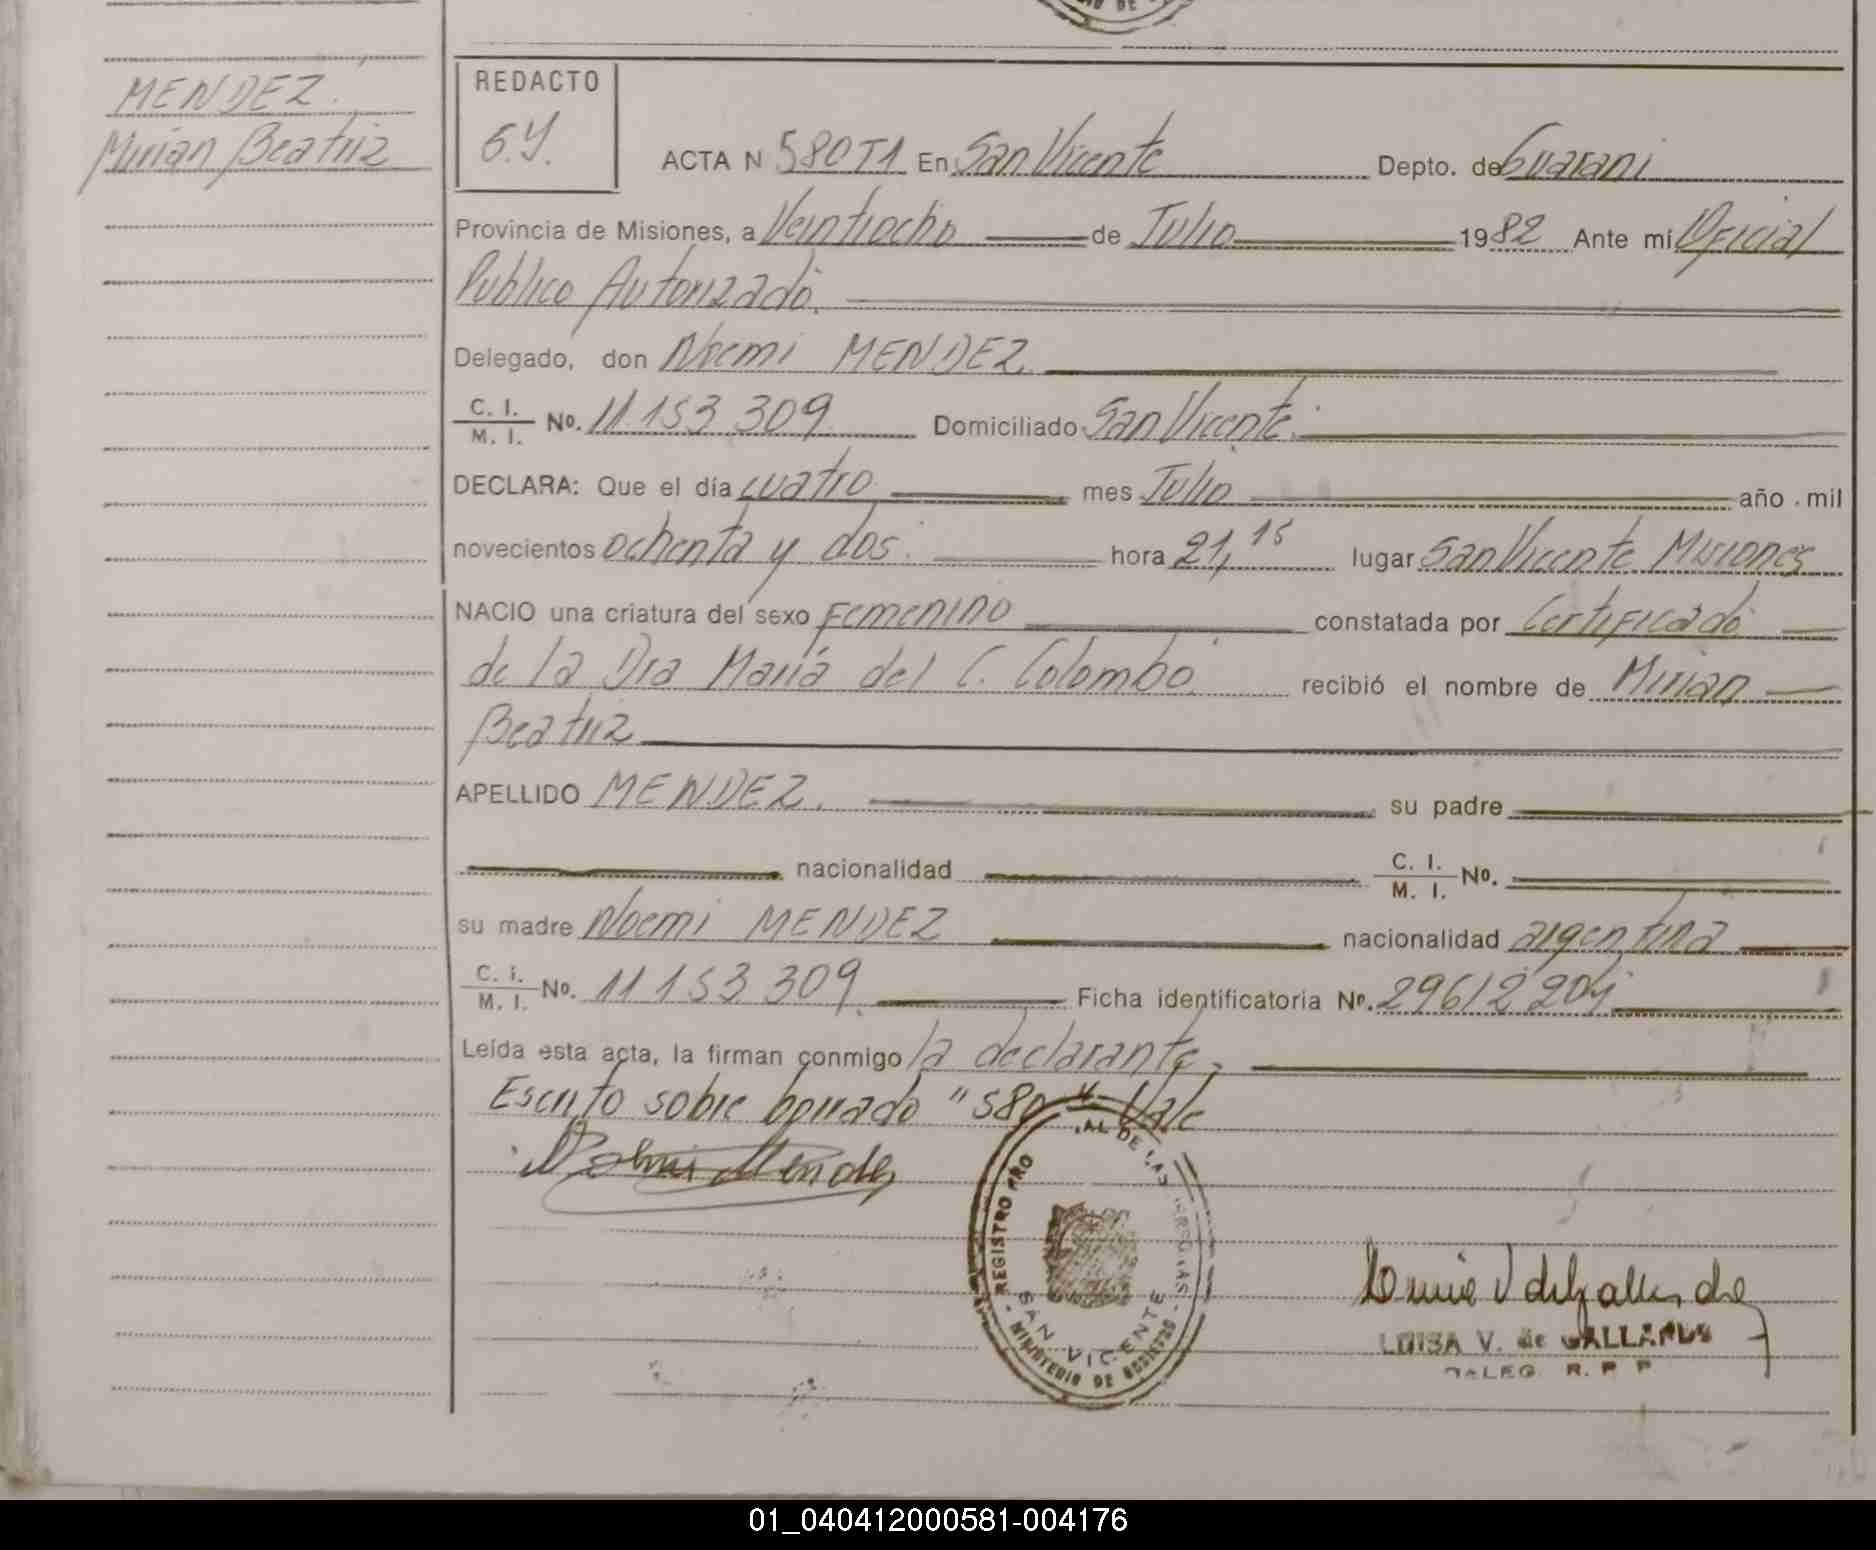 MENDEZ.
Mirian Beatriz
REDACTO
G.Y.
ACTA N 580T1 En San Vicente Depto. de Guarani
Provincia de Misiones, a Veintiocho de Julio 1982 Ante mi Oficial
Publico Autorizado.
Delegado, don Noemi MENDEZ.
C. I.
M. I. No. 11.153.309 Domiciliado San Vicente.
DECLARA: Que el día cuatro mes Julio año mil
novecientos ochenta y dos. hora 21,15 lugar San Vicente Misiones
NACIO una criatura del sexo Femenino constatada por Certificado
de la Dra Maria del C. Colombo recibió el nombre de Mirian
Beatriz
APELLIDO MENDEZ. su padre
nacionalidad C. I.
M. I. No.
su madre Noemi MENDEZ nacionalidad argentina
C. I.
M. I. No. 11.153.309. Ficha identificatoria No. 296/2.204
Leída esta acta, la firman conmigo la declarante,
Escrito sobre borrado "580" Vale
Noemi Mendez
REGISTRO PRO AL DE LAS
MINISTERIO DE GOBIERNO
SAN VICENTE
LUISA V. de GALLARDO
DELEG. R. P. P
01_040412000581-004176